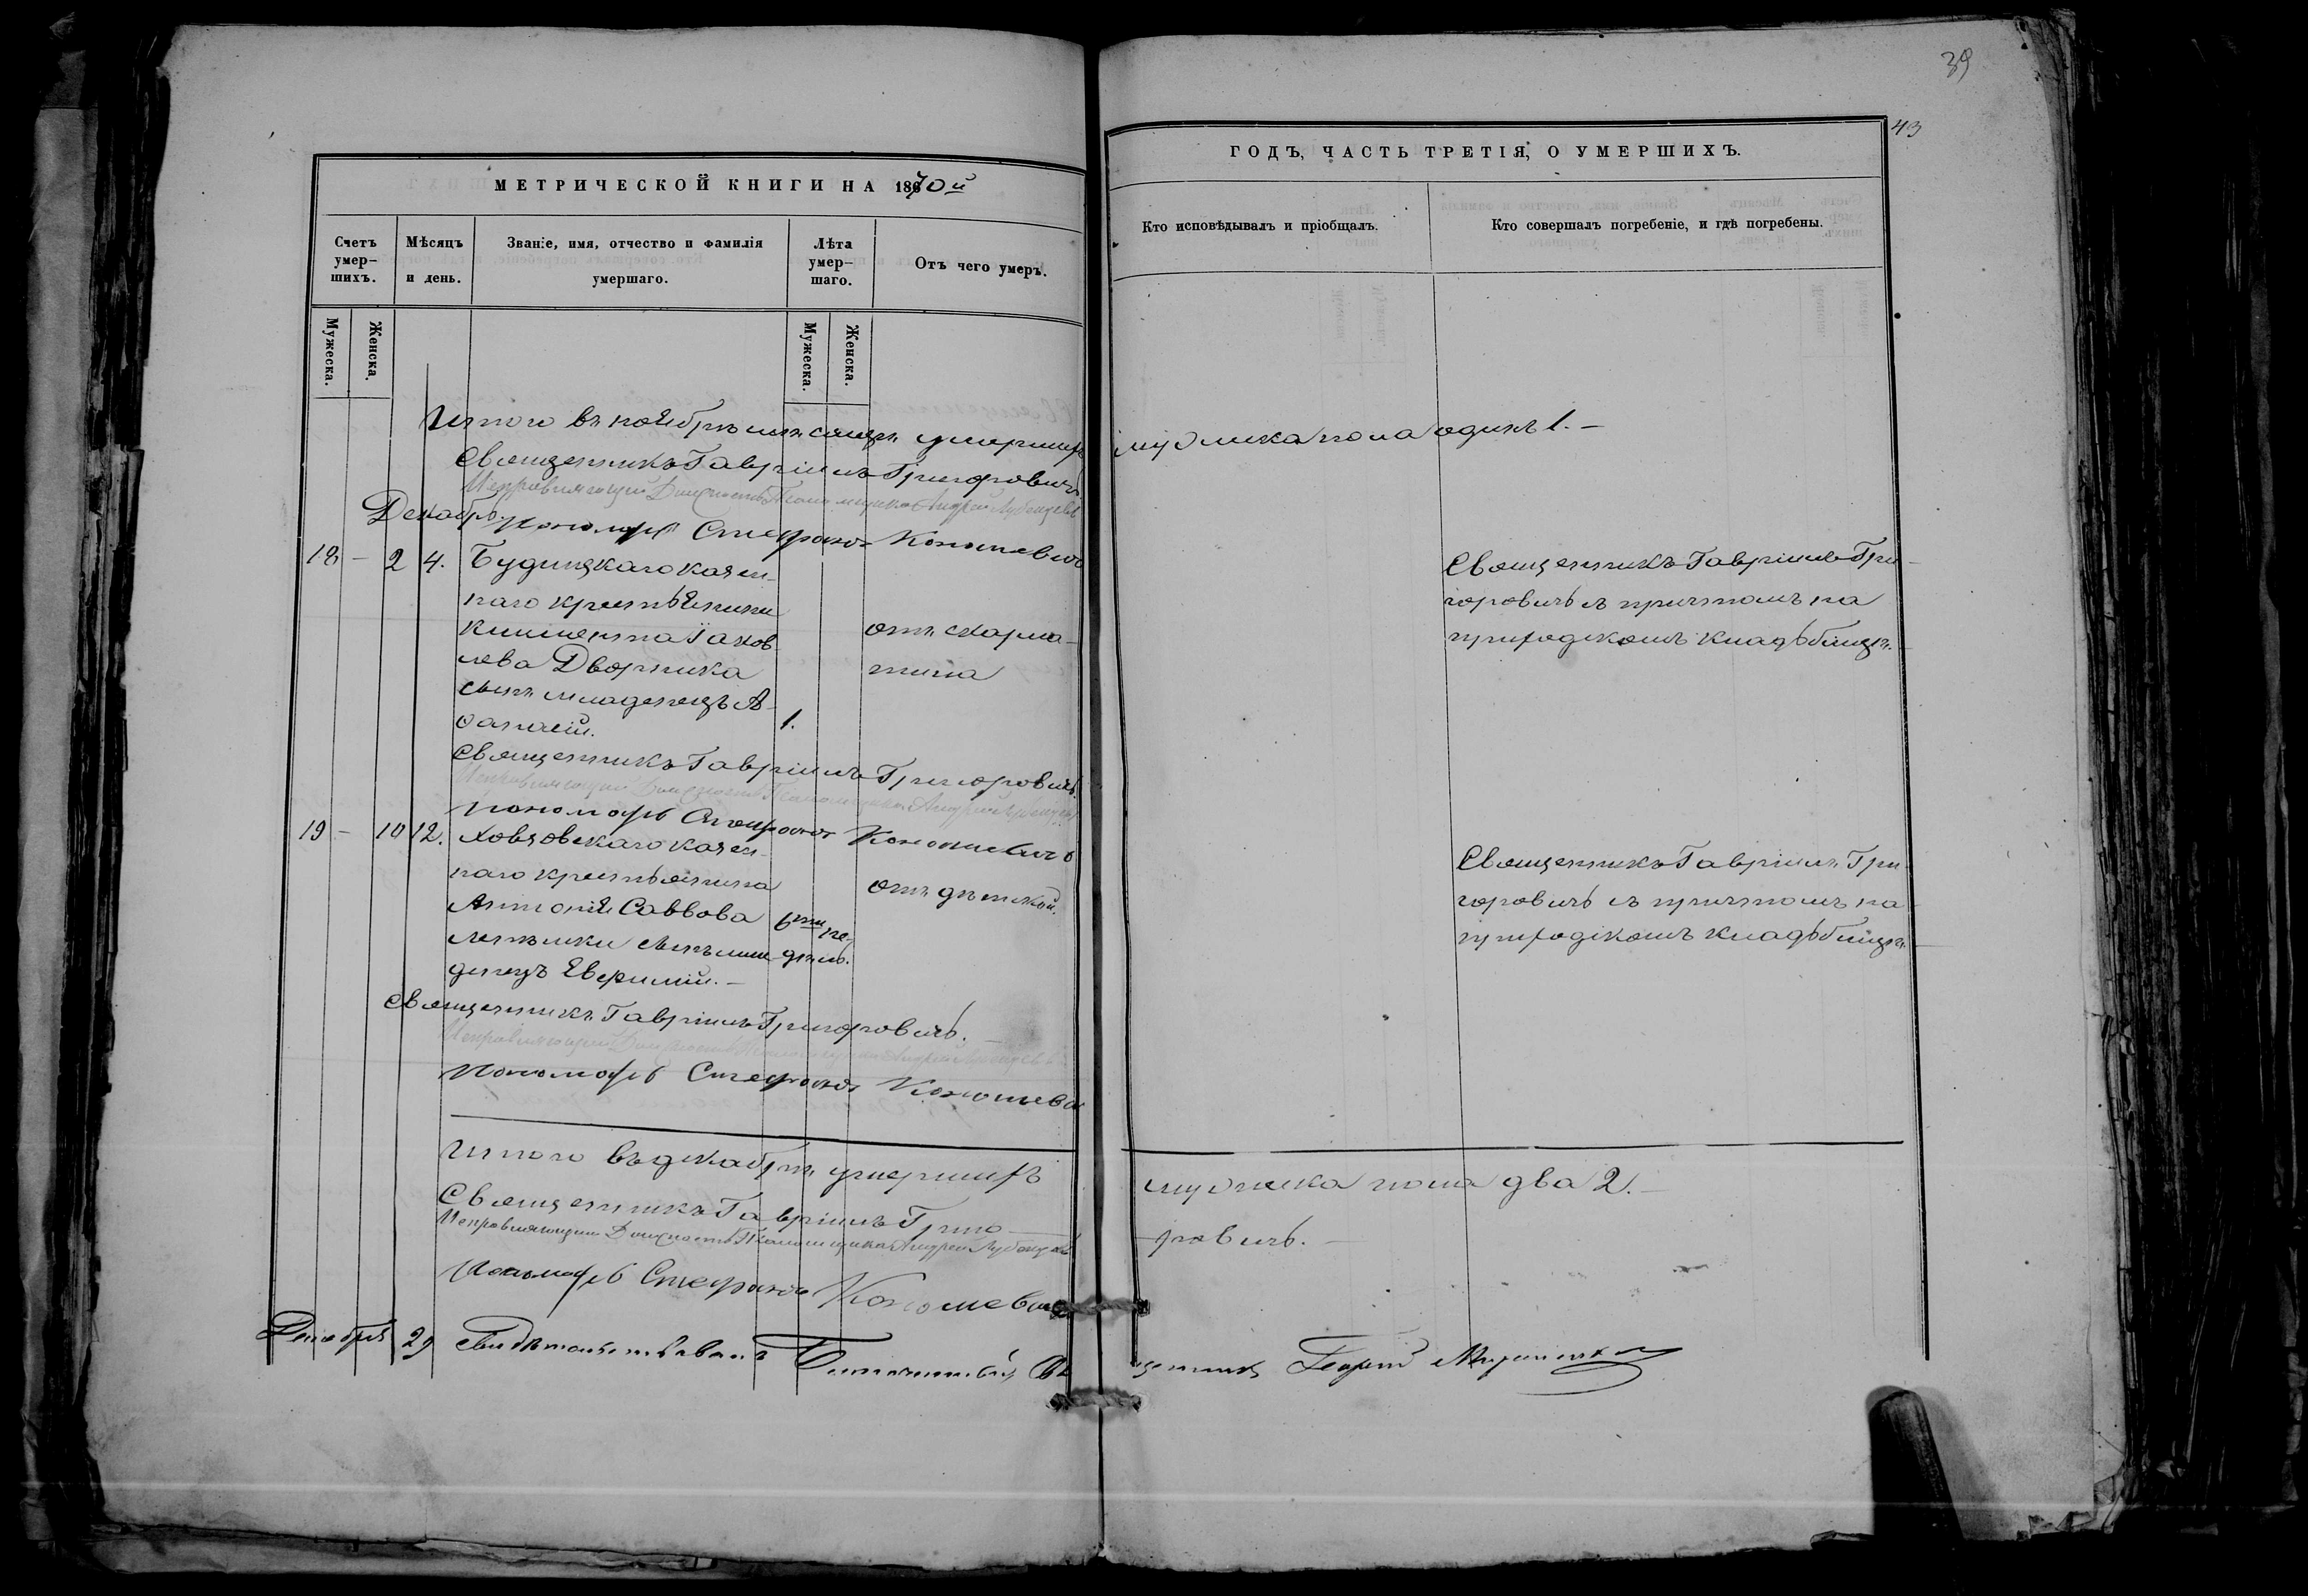 39
43
МЕТРИЧЕСКОЙ КНИГИ НА 1870й
ГОДЪ, ЧАСТЬ ТРЕТІЯ, О УМЕРШИХЪ.
Счетъ умер-шихъ.
Мѣсяцъ и день.
Званіе, имя, отчество и фамилія умершаго.
Лѣта умер-шаго.
Отъ чего умеръ.
Кто исповѣдывалъ и пріобщалъ.
Кто совершалъ погребеніе, и гдѣ погребены.
Мужеска.
Женска.
Мужеска.
Женска.
Итого въ ноябрѣ мѣсяцѣ умерших мужеска пола одинъ 1. —
Священникъ Гавріилъ Григоровичъ.
Исправляющій Должность Псаломщика Андрей
Декабрь
Пономарь Стефанъ
18 — 2 4. Будищкаго казен-
наго крестьянина
Климента Іаков-
лева Дворника
сынъ младенецъ А-
фанасій.
1.
отъ скарла-
тина
Священникъ Гавріилъ Гри-
горовичъ съ причтомъ на
приходскомъ кладбищѣ.
Священникъ Гавріилъ Григоровичъ.
Исправляющій Должность Псаломщика Андрей
Пономарь Стефанъ
19 — 10 12. казен-
наго крестьянина
Антонія Саввова
сынъ мла-
денецъ Евфимій. —
6ти не-
дѣль.
отъ дѣтской.
Священникъ Гавріилъ Гри-
горовичъ съ причтомъ на
приходскомъ кладбищѣ.
Священникъ Гавріилъ Григоровичъ. —
Исправляющій Должность Псаломщика Андрей
Пономарь Стефанъ
Итого въ декабрѣ умершихъ мужеска пола два 2. —
Священникъ Гавріилъ Григо-
ровичъ. —
Исправляющій Должность Псаломщика Андрей
Пономарь Стефанъ
Декабря 29 Свидѣтельствовалъ Благочинный Священникъ Георгій